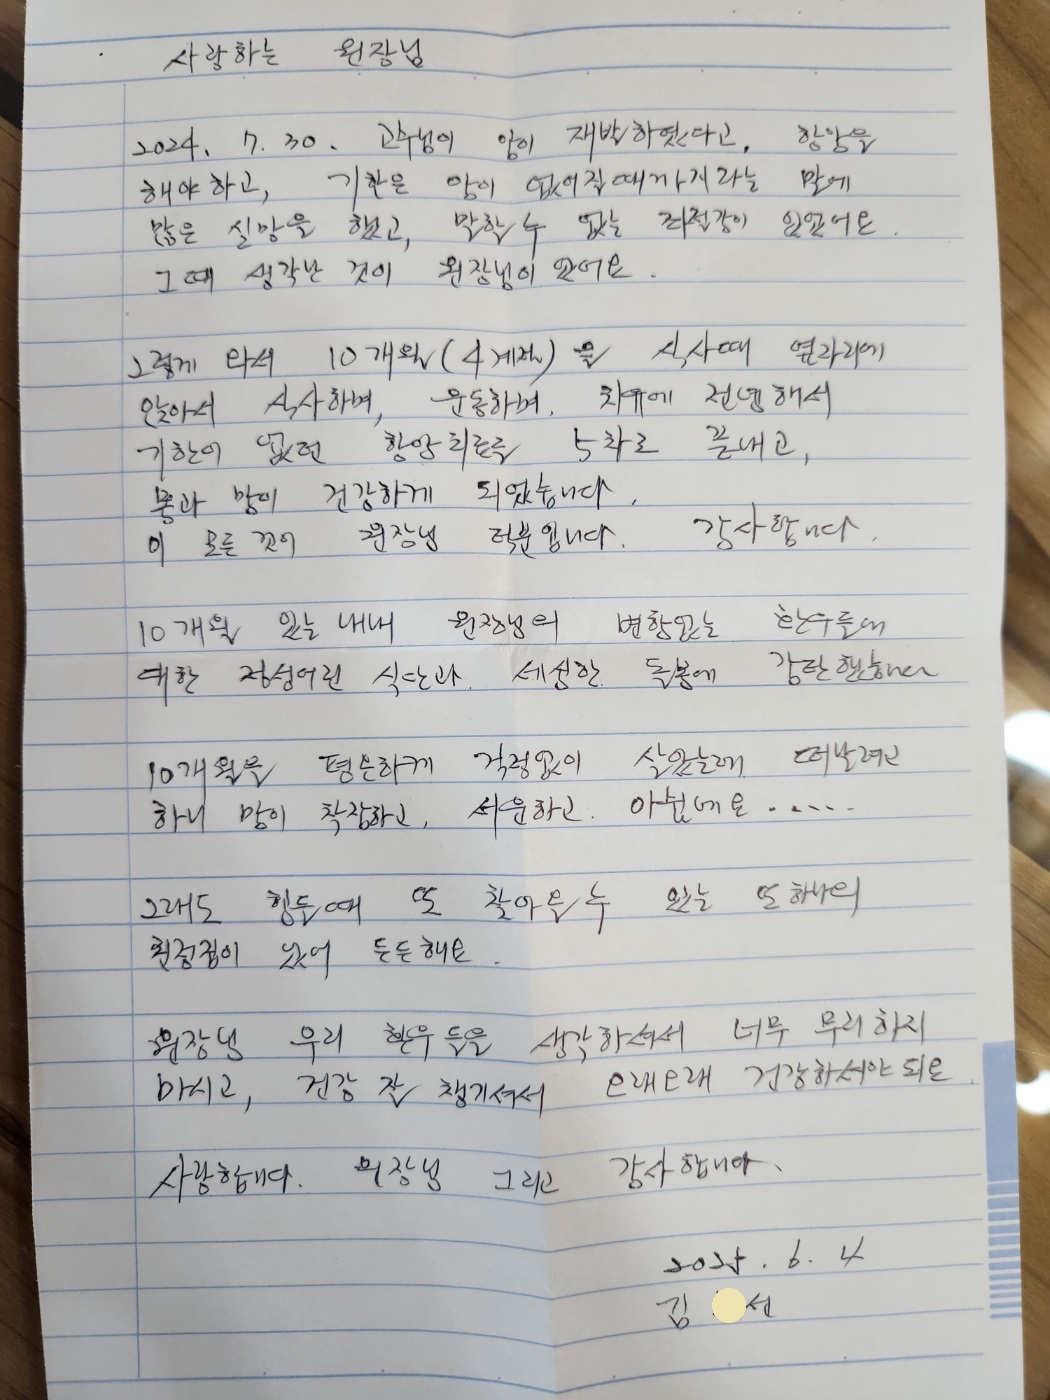 사랑하는 원장님
2024. 7. 30. 교수님이 암이 재발하였다고, 항암을
해야하고, 기한은 암이 없어질때까지라는 말에
많은 실망을 했고, 말할수 없는 좌절감이 있었어요.
그때 생각난 것이 원장님이었어요.
그렇게 와서 10개월(4계절)을 식사때 옆자리에
앉아서 식사하며, 운동하며, 치유에 전념해서
기한이 없던 항암치료를 5차로 끝내고,
몸과 맘이 건강하게 되었습니다.
이 모든것이 원장님 덕분입니다. 감사합니다.
10개월 있는내내 원장님의 변함없는 환우들에
대한 정성어린 식단과 세심한 돌봄에
10개월을 평온하게 걱정없이 살았는데 떠날려고
하니 맘이 착잡하고, 서운하고. 아쉽네요.....
그래도 힘들때 또 찾아올수 있는 또하나의
친정집이 있어 든든해요.
원장님 우리 환우들을 생각하셔서 너무 무리하지
마시고, 건강 잘 챙기셔서 오래오래 건강하셔야되요.
사랑합니다. 원장님 그리고 감사합니다.
2025. 6. 4
김 선